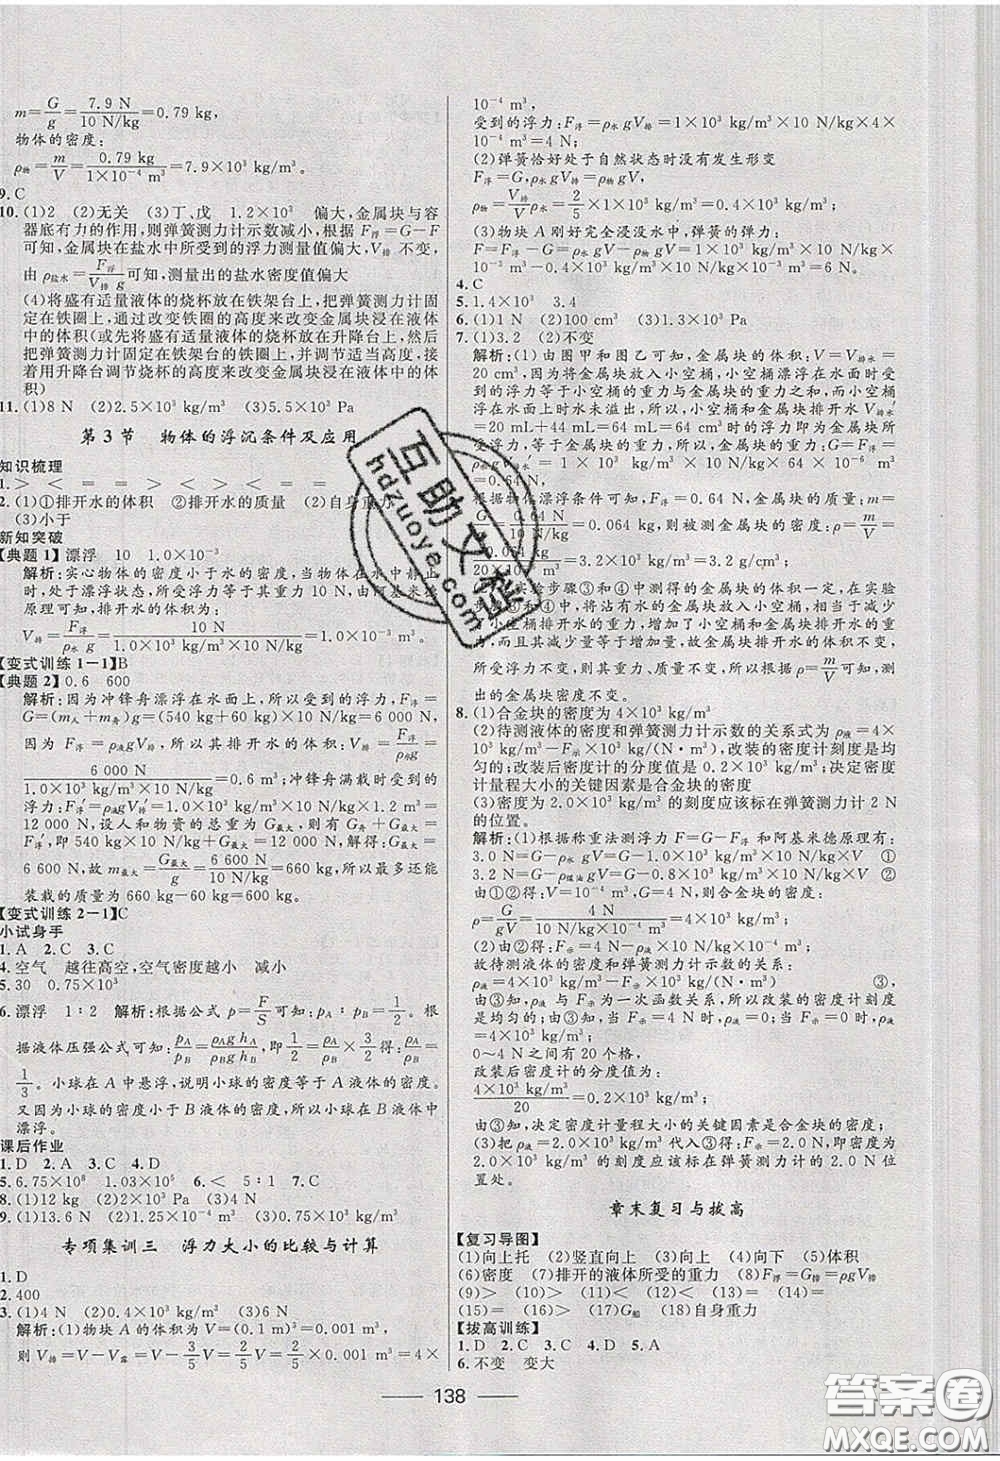 m=G/g=7.9 N/10 N/kg=0.79 kg,
物体的密度:
ρ物=m/V=0.79 kg/1×10⁻⁴ m³=7.9×10³ kg/m³。
9. C
10. (1)2 (2)无关 (3)丁、戊 1.2×10³ 偏大,金属块与容
器底有力的作用,则弹簧测力计示数减小,根据 F浮=G-F
可知,金属块在盐水中所受到的浮力测量值偏大, V排 不变,
由 ρ盐水=F浮/V排 g 可知,测量出的盐水密度值偏大
(4)将盛有适量液体的烧杯放在铁架台上,把弹簧测力计固
定在铁圈上,通过改变铁圈的高度来改变金属块浸在液体
中的体积(或先将盛有适量液体的烧杯放在升降台上,然后
把弹簧测力计固定在铁架台的铁圈上,并调节适当高度,接
着用升降台调节烧杯的高度来改变金属块浸在液体中的体
积)
11. (1)8 N (2)2.5×10³ kg/m³ (3)5.5×10³ Pa
第3节 物体的浮沉条件及应用
知识梳理
1. > < = = > < < = = >
2. (1)①排开水的体积 ②排开水的质量 (2)自身重力
(3)小于
新知突破
【典题1】漂浮 10 1.0×10⁻³
解析:实心物体的密度小于水的密度,当物体在水中静止
时,处于漂浮状态,所受浮力等于其重力10 N,由阿基米德
原理可知,排开水的体积为:
V排=F浮/ρ水g=10 N/1.0×10³ kg/m³×10 N/kg=1.0×10⁻³ m³。
【变式训练1-1】B
【典题2】0.6 600
解析:因为冲锋舟漂浮在水面上,所以所受的浮力,F浮=
G=(m人+m舟)g=(540 kg+60 kg)×10 N/kg=6 000 N,
因为 F浮=ρ液gV排,所以其排开水的体积:V排=F浮/ρ水g=
6 000 N/1.0×10³ kg/m³×10 N/kg=0.6 m³;冲锋舟满载时受到的
浮力:F浮′=ρ液gV排′=1.0×10³ kg/m³×10 N/kg×1.2 m³=
12 000 N,设人和物资的总重为G最大,则有:G舟+G最大=
F浮′,即 540 kg×10 N/kg+G最大=12 000 N,解得:G最大=
6 600 N,故 m最大=G最大/g=6 600 N/10 N/kg=660 kg,所以最多还能
装载的质量为 660 kg-60 kg=600 kg。
【变式训练2-1】C
小试身手
1. A 2. C 3. C
4. 空气 越往高空,空气密度越小 减小
5. 30 0.75×10³
6. 漂浮 1∶2 解析:根据公式 p=F/S可知:pA∶pB=1/2。根
据液体压强公式可知:pA/pB=ρAghA/ρBghB=1/2=ρA/ρB×3/2得:ρA/ρB=
1/3。小球在A中悬浮,说明小球的密度等于A液体的密度。
又因为小球的密度小于B液体的密度,所以小球在B液体中
漂浮。
课后作业
1. D 2. A 3. C 4. D
5. 6.75×10⁸ 1.03×10⁵ 6. < 5∶1 7. C
8. (1)12 kg (2)2×10³ Pa (3)4 kg
9. (1)13.6 N (2)1.25×10⁻⁴ m³ (3)2.4×10³ kg/m³
专项集训三 浮力大小的比较与计算
1. D
2. 400
3. (1)4 N (2)0.4×10³ kg/m³ (3)6 N
解析:(1)物块A的体积为V=(0.1 m)³=0.001 m³,
则 V排=V-V露=V-3/5V=2/5V=2/5×0.001 m³=4×
10⁻⁴ m³,
受到的浮力:F浮=ρ水gV排=1×10³ kg/m³×10 N/kg×4×
10⁻⁴ m³=4 N;
(2)弹簧恰好处于自然状态时没有发生形变
F浮=G,ρ水gV排=ρ物gV,
ρ物=V排/Vρ水=2/5×1×10³ kg/m³=0.4×10³ kg/m³;
(3)物块A刚好完全浸没水中,弹簧的弹力:
F=F浮-G=ρ水gV-ρ物gV=1×10³ kg/m³×10 N/kg×
10⁻³ m³-0.4×10³ kg/m³×10 N/kg×10⁻³ m³=6 N。
4. C
5. 1.4×10³ 3.4
6. (1)1 N (2)100 cm³ (3)1×10³ Pa
7. (1)3.2 (2)不变
解析:(1)由图甲和图乙可知,金属块的体积:V=V排水=
20 cm³,因为将金属块放入小空桶,小空桶漂浮在水面时受
到的浮力等于小空桶的重力与金属块的重力之和,而小空桶
漂浮在水面时水未溢出,所以,小空桶和金属块排开水的体积V排′
=20 mL+44 mL+64 mL=64 cm³,小空桶和金属块的总重力为:
G=F浮=ρ水gV排′=1×10³ kg/m³×10 N/kg×64×10⁻⁶ m³=
0.64 N,
根据物体漂浮条件可知,G=F浮=0.64 N,金属块的质量:m=
G/g=0.64 N/10 N/kg=0.064 kg,则被测金属块的密度:ρ=m/V=
0.064 kg/20×10⁻⁶ m³=3.2×10³ kg/m³=3.2 g/cm³。
实验步骤③和④中测得的金属块的体积一定,在实验
步骤③和④中,将沾有水的金属块放入小空桶,相当于减少
了小空桶的重力,增加了小空桶和金属块排开水的体积
,但其减少量与增加量相等,故金属块排开水的体积不变,
所受浮力不变,其重力、质量不变,所以,根据ρ=m/V可知,测
出的金属块密度不变。
8. (1)合金块的密度为4×10³ kg/m³
(2)待测液体的密度和弹簧测力计示数的关系式为ρ液=4
×10³ kg/m³-F示×10³ kg/(N·m³),改装的密度计刻度是均
匀的;改装后密度计的分度值是0.2×10³ kg/m³;决定密度
计量程大小的关键因素是合金块的密度
(3)2×10³ kg/m³的刻度应该标在弹簧测力计2 N
的位置。
解析:(1)根据称重法测浮力 F=G-F示和阿基米德原理有:
3.0 N=G-ρ水gV=G-1.0×10³ kg/m³×10 N/kg×V ①
3.2 N=G-ρ煤油gV=G-0.8×10³ kg/m³×10 N/kg×V ②
①②联立解得:V=10⁻⁴ m³,G=4 N,则合金块的密度:
ρ=G/gV=4 N/10 N/kg×10⁻⁴ m³=4×10³ kg/m³
(2)由②得:F示=4 N-ρ液×10 N/kg×10⁻⁴ m³
故待测液体的密度和弹簧测力计示数的关系:
ρ液=4×10³ kg/m³-F示×10³ kg/(N·m³) ③
由③知,ρ液与F示为一次函数关系,所以改装的密度计刻度
是均匀的;由③知,当F示=4 N时,ρ液=0,当F示=0时,ρ液=
4×10³ kg/m³,
0~4 N之间有20个格,
改装后密度计的分度值为:
4×10³ kg/m³/20=0.2×10³ kg/m³;
由③知,决定密度计量程大小的关键因素是合金块的密度;
(3)将 ρ液=2×10³ kg/m³代入③得:F示=2.0 N,所以
2.0×10³ kg/m³的刻度应该标在弹簧测力计的2.0 N位
置处。
章末复习与拔高
【复习导图】
(1)向上托 (2)竖直向上 (3)向上 (4)向下 (5)体积
(6)密度 (7)排开的液体所受的重力 (8)F浮=G排=ρgV排
(9)> (10)> (11)= (12)= (13)< (14)<
(15)= (16)= (17)G船 (18)自身重力
【拔高训练】
1. D 2. C 3. C 4. D 5. A
6. 不变 变大
138
互助文档
hdzuoye.com
答案圈
MXQE.COM